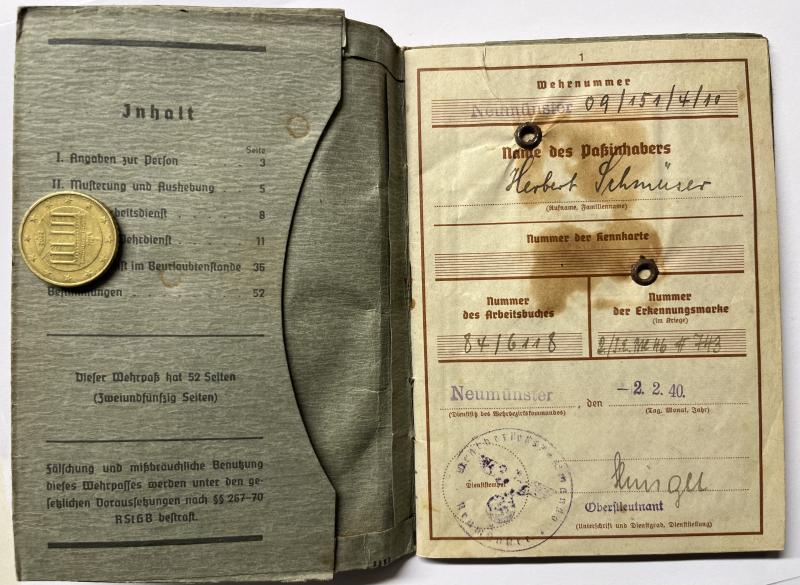 Inhalt
Seite
I. Angaben zur Person 3
II. Musterung und Aushebung . . . 5
beitsdienst . . . . . . 8
ehrdienst . . . . . . 11
st im Beurlaubtenstande 36
Bestimmungen . . . . . . . . 52
Dieser Wehrpaß hat 52 Seiten
(Zweiundfünfzig Seiten)
Fälschung und mißbräuchliche Benutzung
dieses Wehrpasses werden unter den ge-
setzlichen Voraussetzungen nach §§ 267-70
RStGB bestraft.
1
Wehrnummer
Neumünster 09/151/4/10
Name des Paßinhabers
Herbert Schmüser
(Rufname, Familienname)
Nummer der Kennkarte
Nummer
des Arbeitsbuches
84/6118
Nummer
der Erkennungsmarke
(im Kriege)
743
Neumünster, den -2. 2. 40.
(Dienstsitz des Wehrbezirkskommandos) (Tag, Monat, Jahr)
Wehrbezirkskommando
Neumünster
Dienststempel
Oberstleutnant
(Unterschrift und Dienstgrad, Dienststellung)